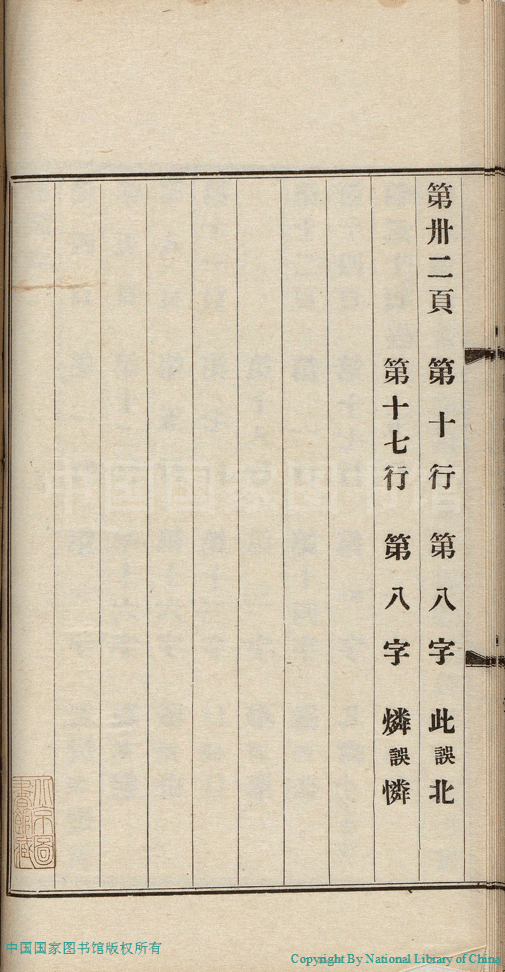 第卅二頁 第十行 第八字 此誤北
第十七行 第八字 燐誤憐
中国国家图书馆版权所有
Copyright By National Library of China